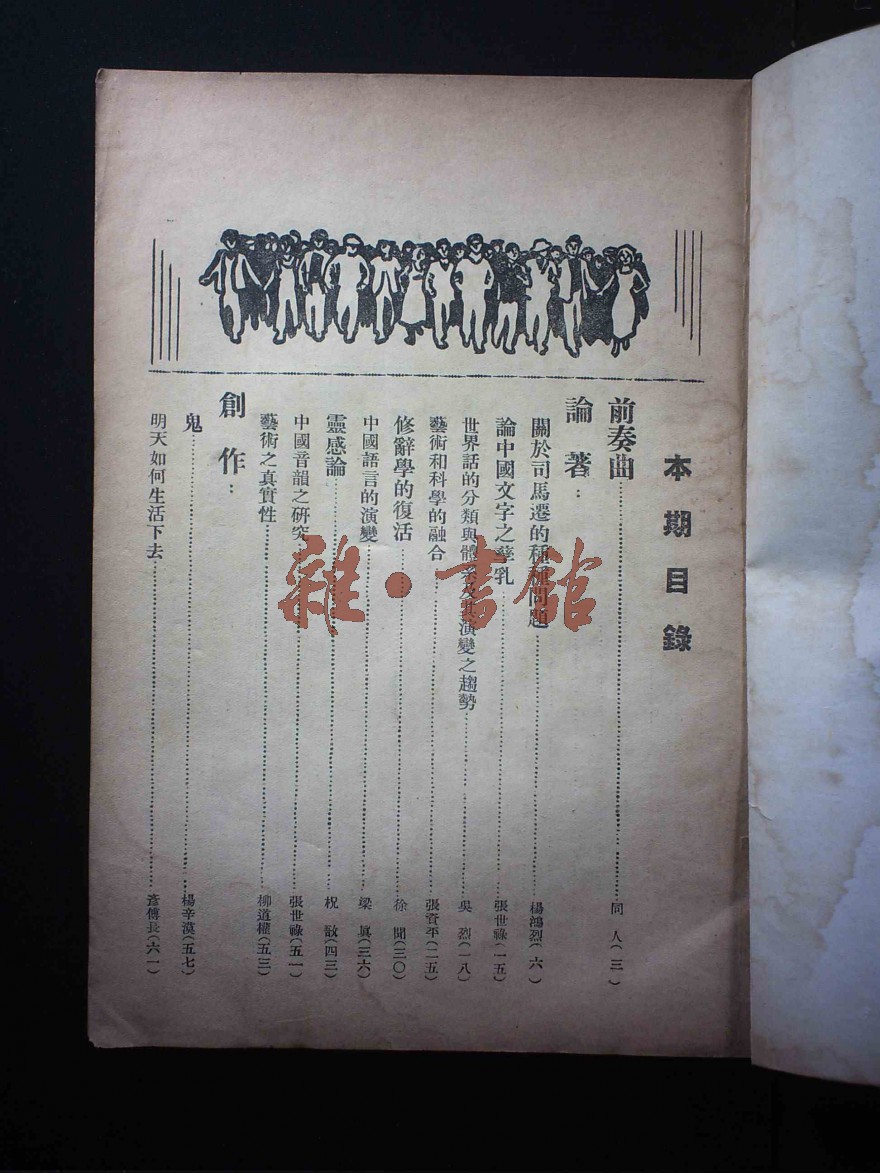 本期目錄
前奏曲 同人(三)
論著：
關於司馬遷的種種問題 楊鴻烈(六)
論中國文字之孳乳 張世祿(一五)
世界話的分類與體系及其演變之趨勢 吳烈(一八)
藝術和科學的融合 張資平(二五)
修辭學的復活 徐聞(三〇)
中國語言的演變 梁真(三六)
靈感論 祝(四三)
中國音韻之研究 張世祿(五一)
藝術之真實性 柳道權(五三)
創作：
鬼 楊辛漠(五七)
明天如何生活下去 傅長(六一)
雜·書館